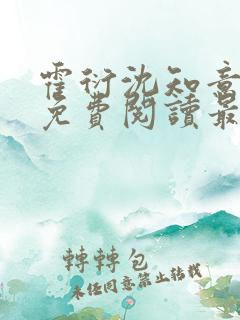 霍衍沈知意
免費閱讀最
轉轉包
未经同意禁止转载